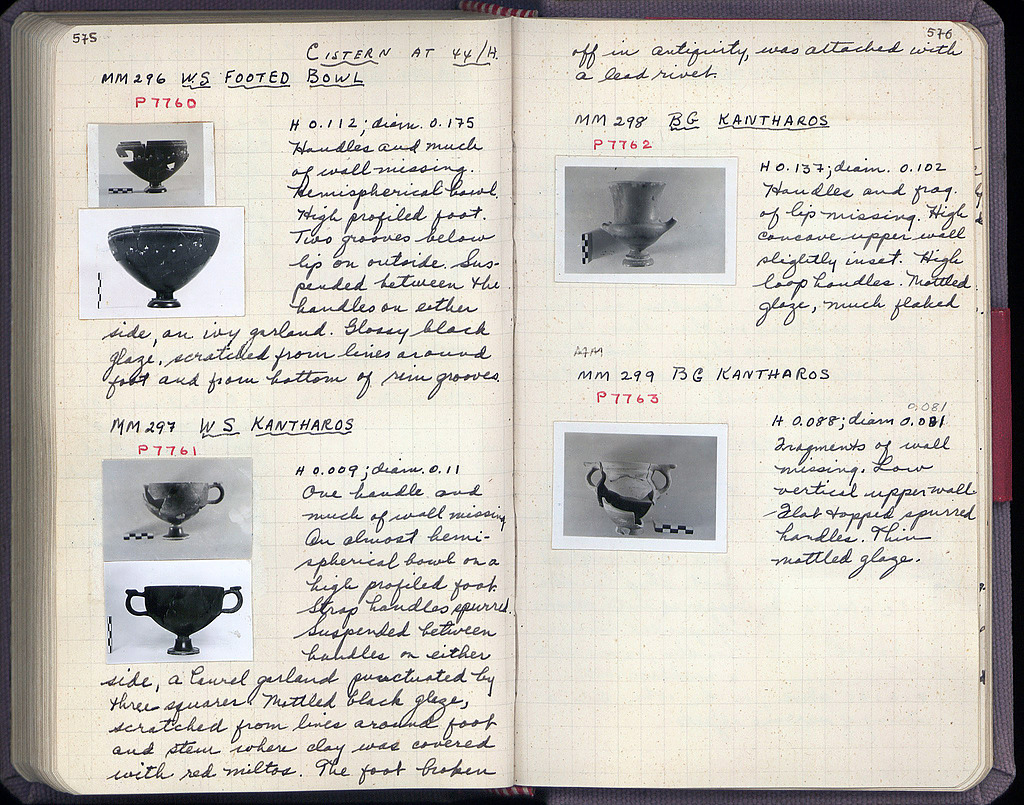 575
CISTERN AT 44/H.
MM 296 WS FOOTED BOWL
P 7760
H 0.112; diam. 0.175
Handles and much
of wall missing.
Hemispherical bowl.
High profiled foot.
Two grooves below
lip on outside. Sus-
pended between the
handles on either
side, an ivy garland. Glossy black
glaze, scratched from lines around
foot and from bottom of rim grooves.
MM 297 WS KANTHAROS
P 7761
H 0.009; diam. 0.11
One handle and
much of wall missing
An almost hemi-
spherical bowl on a
high profiled foot.
Strap handles spurred.
Suspended between
handles on either
side, a laurel garland punctuated by
three squares. Mottled black glaze,
scratched from lines around foot
and stem where clay was covered
with red miltos. The foot broken
576
off in antiquity, was attached with
a lead rivet.
MM 298 BG KANTHAROS
P 7762
H 0.137; diam. 0.102
Handles and frag.
of lip missing. High
concave upper wall
slightly inset. High
loop handles. Mottled
glaze, much flaked
MM
MM 299 BG KANTHAROS
P 7763
0.081
H 0.088; diam 0.081
Fragments of wall
missing. Low
vertical upper wall
Flat topped spurred
handles. Thin
mottled glaze.